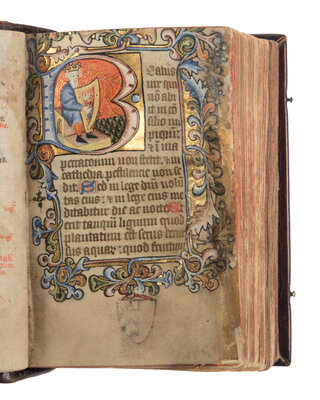 Beatus
uir qui
nō abi
it in cō
silio im
piorū:
& in uia
peccatorum non stetit, & in
cathedra pestilencie non se
dit. Sed in lege dn̄i volū
tas eius: & in lege eius me
ditabitur die ac nocte. Et
erit tanquam lignum quod
plantatum est secus decur
sus aquar̄: quod fructum